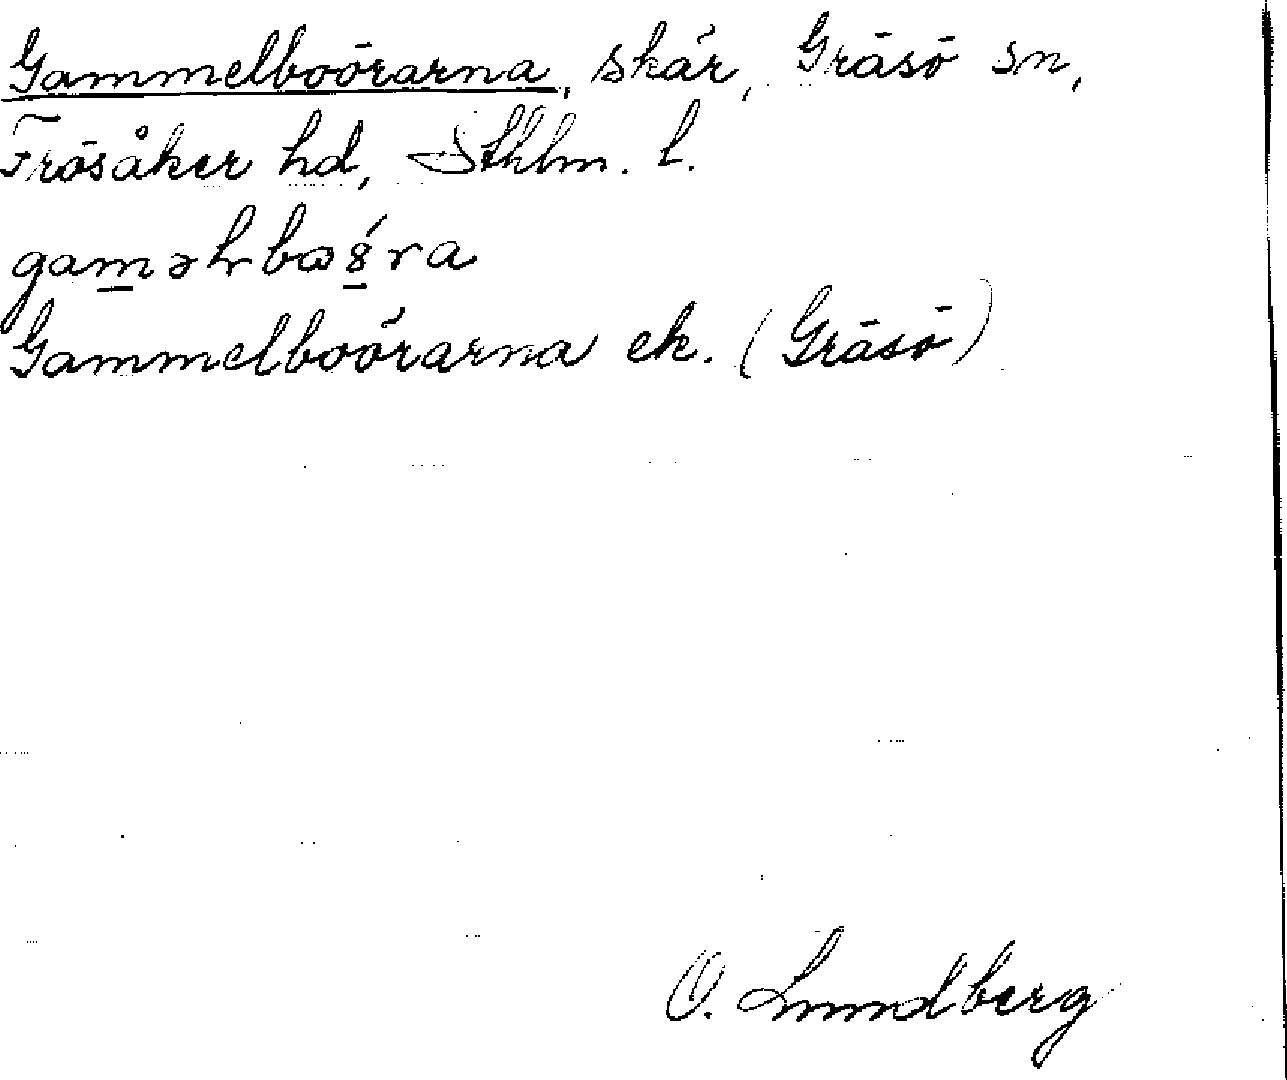 Gammelboörarna, skär, Gräsö sn,
Frösåker hd, Sthlm. l.
Gammelboörarna ek. (Gräsö)
O. Lundberg